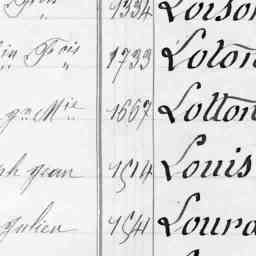 1334 Loiso
Fois 1733 Loton
Mie 1667 Lotton
ph Jean 1514 Louis
Julien 1541 Lourd